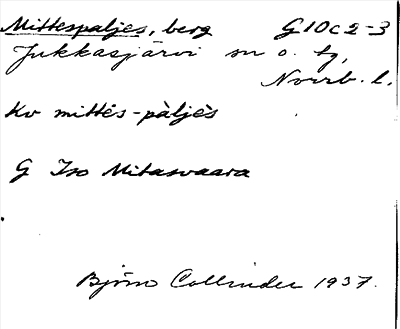 Mittespaljes, berg G10c2-3
Jukkasjärvi sn o. tg,
Norrb. l.
Kv mittės-pàljės
G Iso Mitasvaara
Björn Collinder 1937.